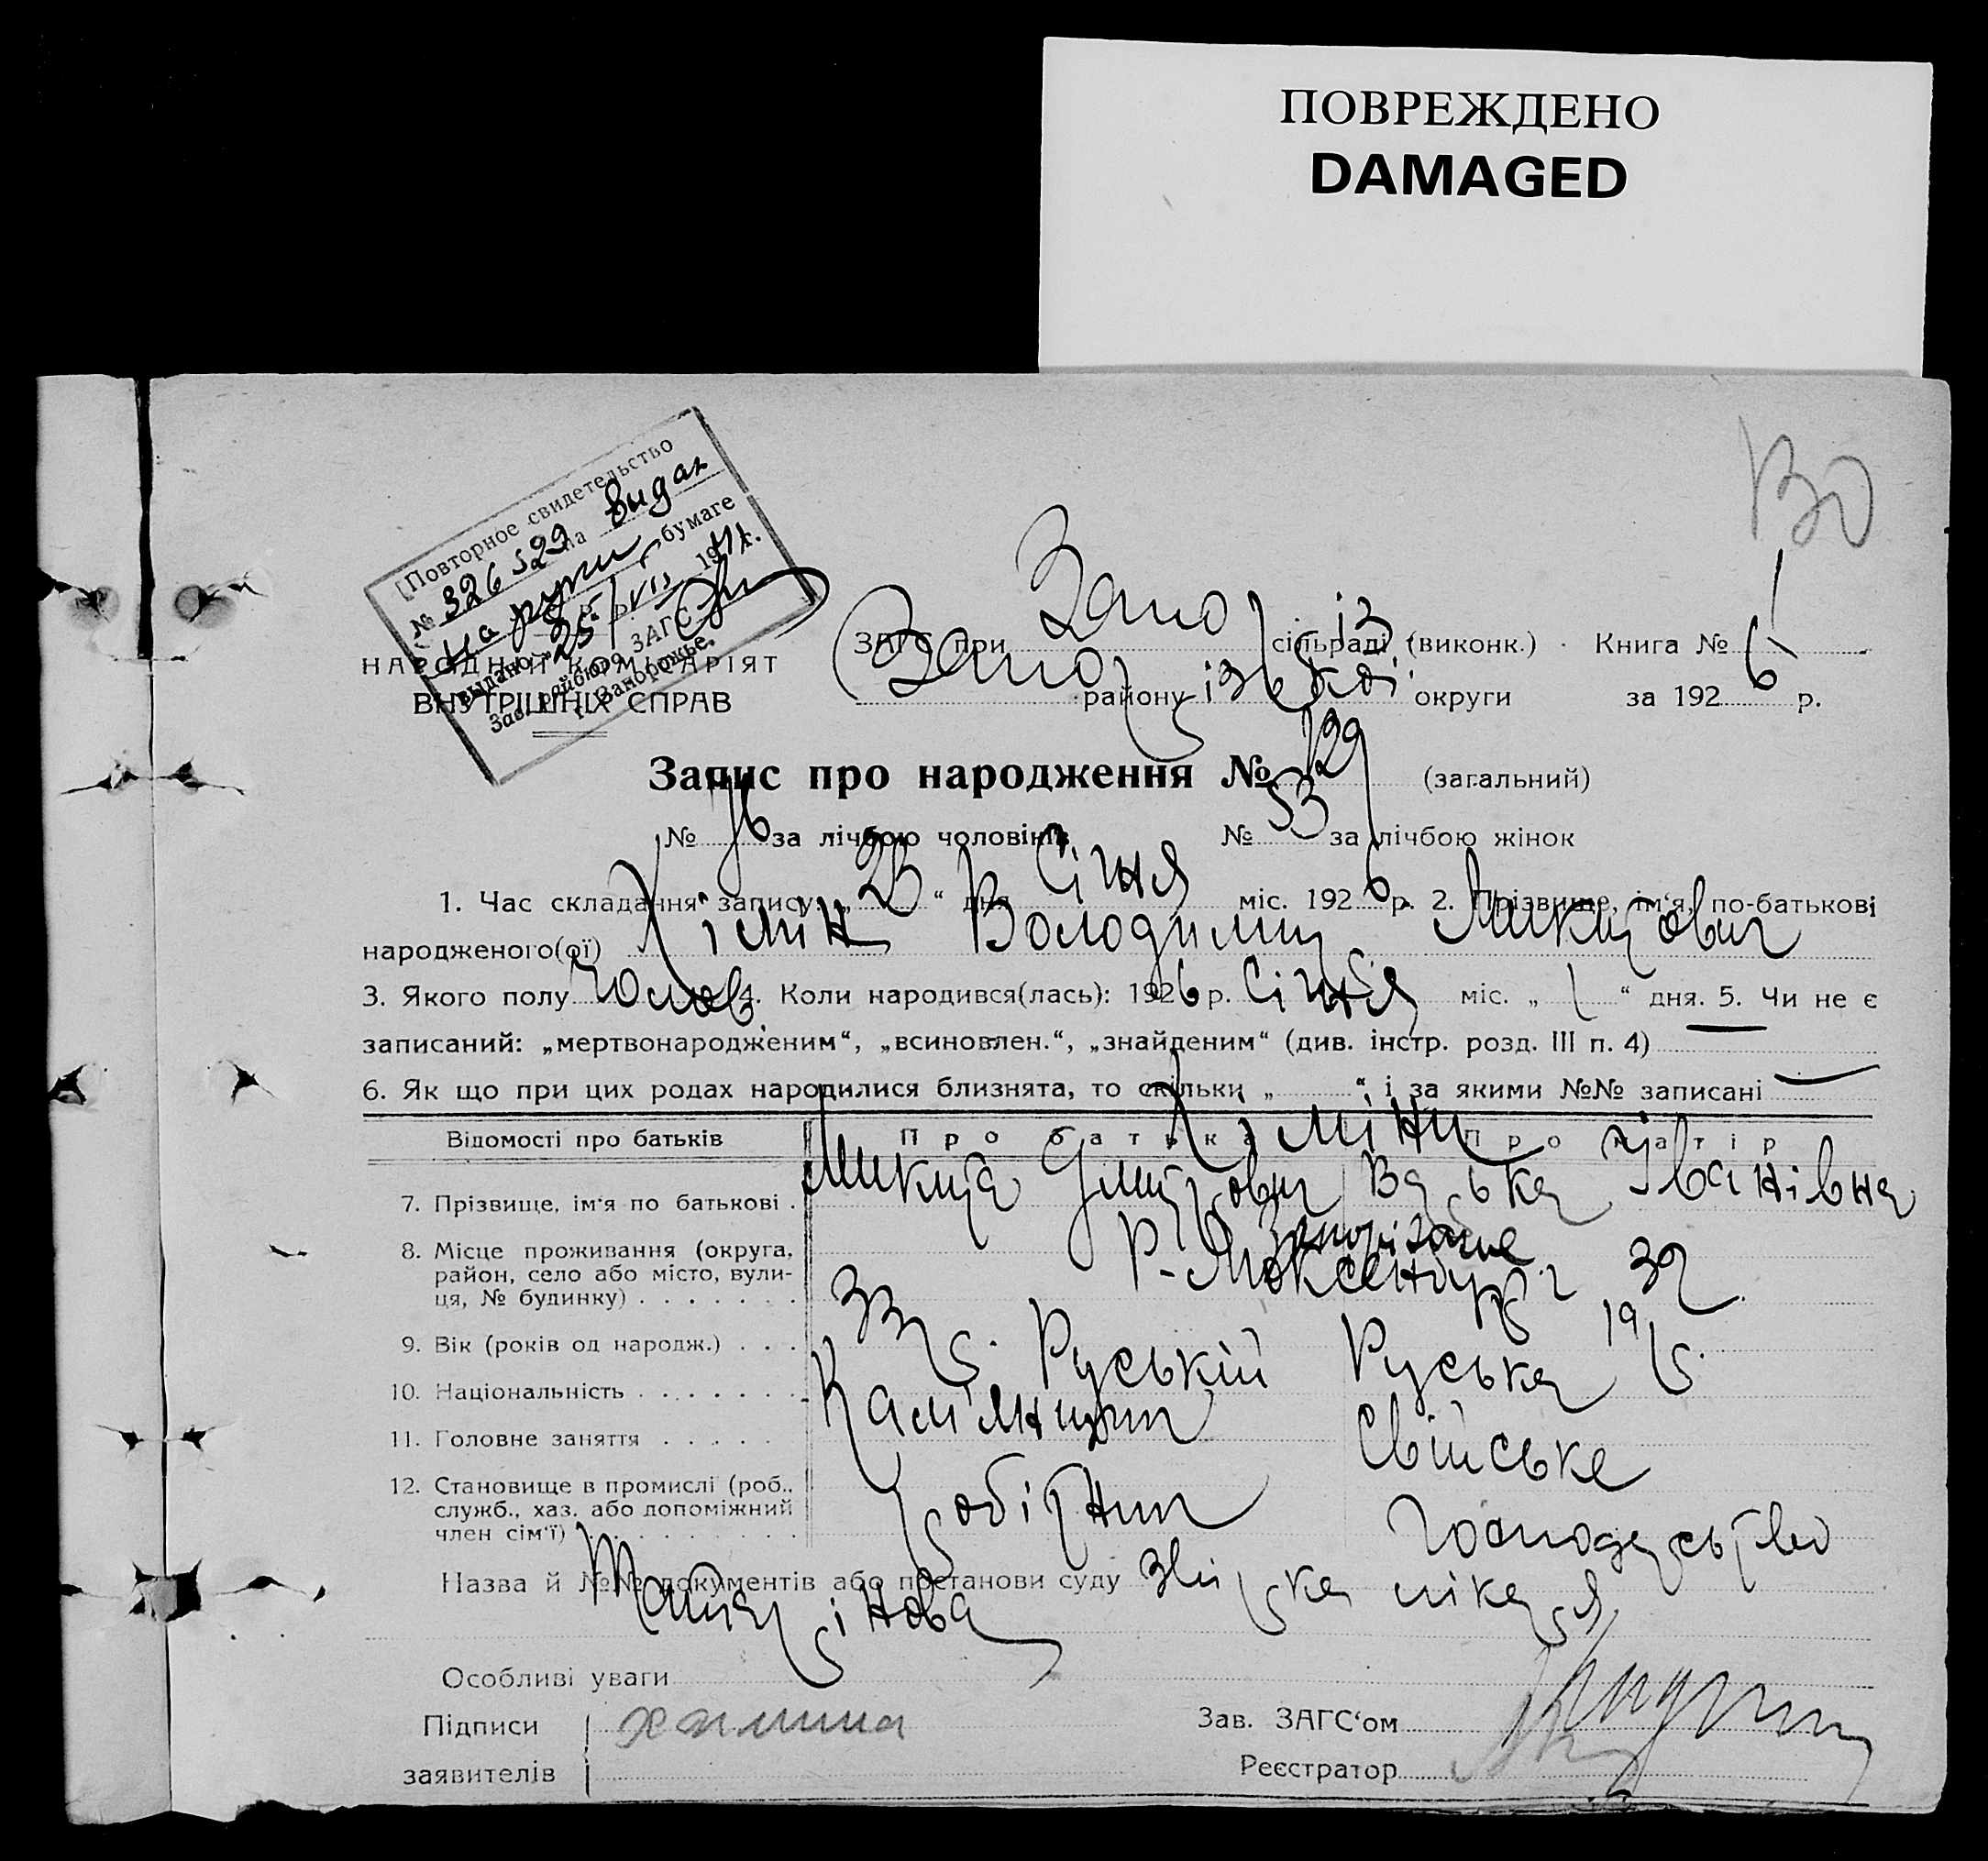 ПОВРЕЖДЕНО
DAMAGED
Повторное свидетельство
№ 326529 на видан
на руки бумаге
выдано „25" VII 1941 г.
Зав. райбюро ЗАГС
г. Запорожье.
НАРОДНИЙ КОМІСАРІЯТ
ВНУТРІШНІХ СПРАВ
ЗАГС при Запоріз сільраді (виконк.) Книга № 1
Запорізької району округи за 1926 р.
Запис про народження № 129 (загальний)
№ 76 за лічбою чоловіків № 53 за лічбою жінок
1. Час складання запису: „ “ дня Січня міс. 1926 р. 2. Прізвище, ім‘я, по-батькові
народженого(ої) Хімін Володимир Микитович
3. Якого полу Чолов. 4. Коли народився(лась): 1926 р. Січня міс. „1“ дня. 5. Чи не є
записаний: „мертвонародженим“, „всиновлен.“, „знайденим“ (див. інстр. розд. III п. 4) —
6. Як що при цих родах народилися близнята, то скільки „ “ і за якими №№ записані —
Відомості про батьків Про батька Про матір
Хіміни
7. Прізвище, ім‘я по батькові . Микита Дмитрович Іванівна
8. Місце проживання (округа, район, село або місто, вулиця, № будинку) . . . . . . . Запоріжжє
32
9. Вік (років од народж.) . . . 33 р. 19 р.
10. Національність . . . . . . . Руський Руська
11. Головне заняття . . . . . Свійське
12. Становище в промислі (роб., служб., хаз. або допоміжний член сім‘ї) . . . . . . . . . . Робітник Господарство
Назва й №№ документів або постанови суду лікаря
Особливі уваги
Підписи Химина Зав. ЗАГС‘ом
заявителів Реєстратор